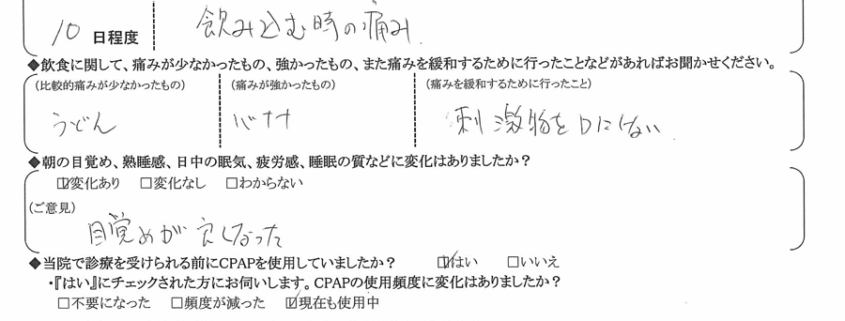 10 日程度 飲み込む時の痛み.
◆飲食に関して、痛みが少なかったもの、強かったもの、また痛みを緩和するために行ったことなどがあればお聞かせください。
(比較的痛みが少なかったもの) (痛みが強かったもの) (痛みを緩和するために行ったこと)
うどん バナナ 刺激物を口にしない
◆朝の目覚め、熟睡感、日中の眠気、疲労感、睡眠の質などに変化はありましたか?
☑変化あり □変化なし □わからない
(ご意見)
目覚めが良くなった
◆当院で診療を受けられる前にCPAPを使用していましたか? ☑はい □いいえ
・『はい』にチェックされた方にお伺いします。CPAPの使用頻度に変化はありましたか?
□不要になった □頻度が減った ☑現在も使用中